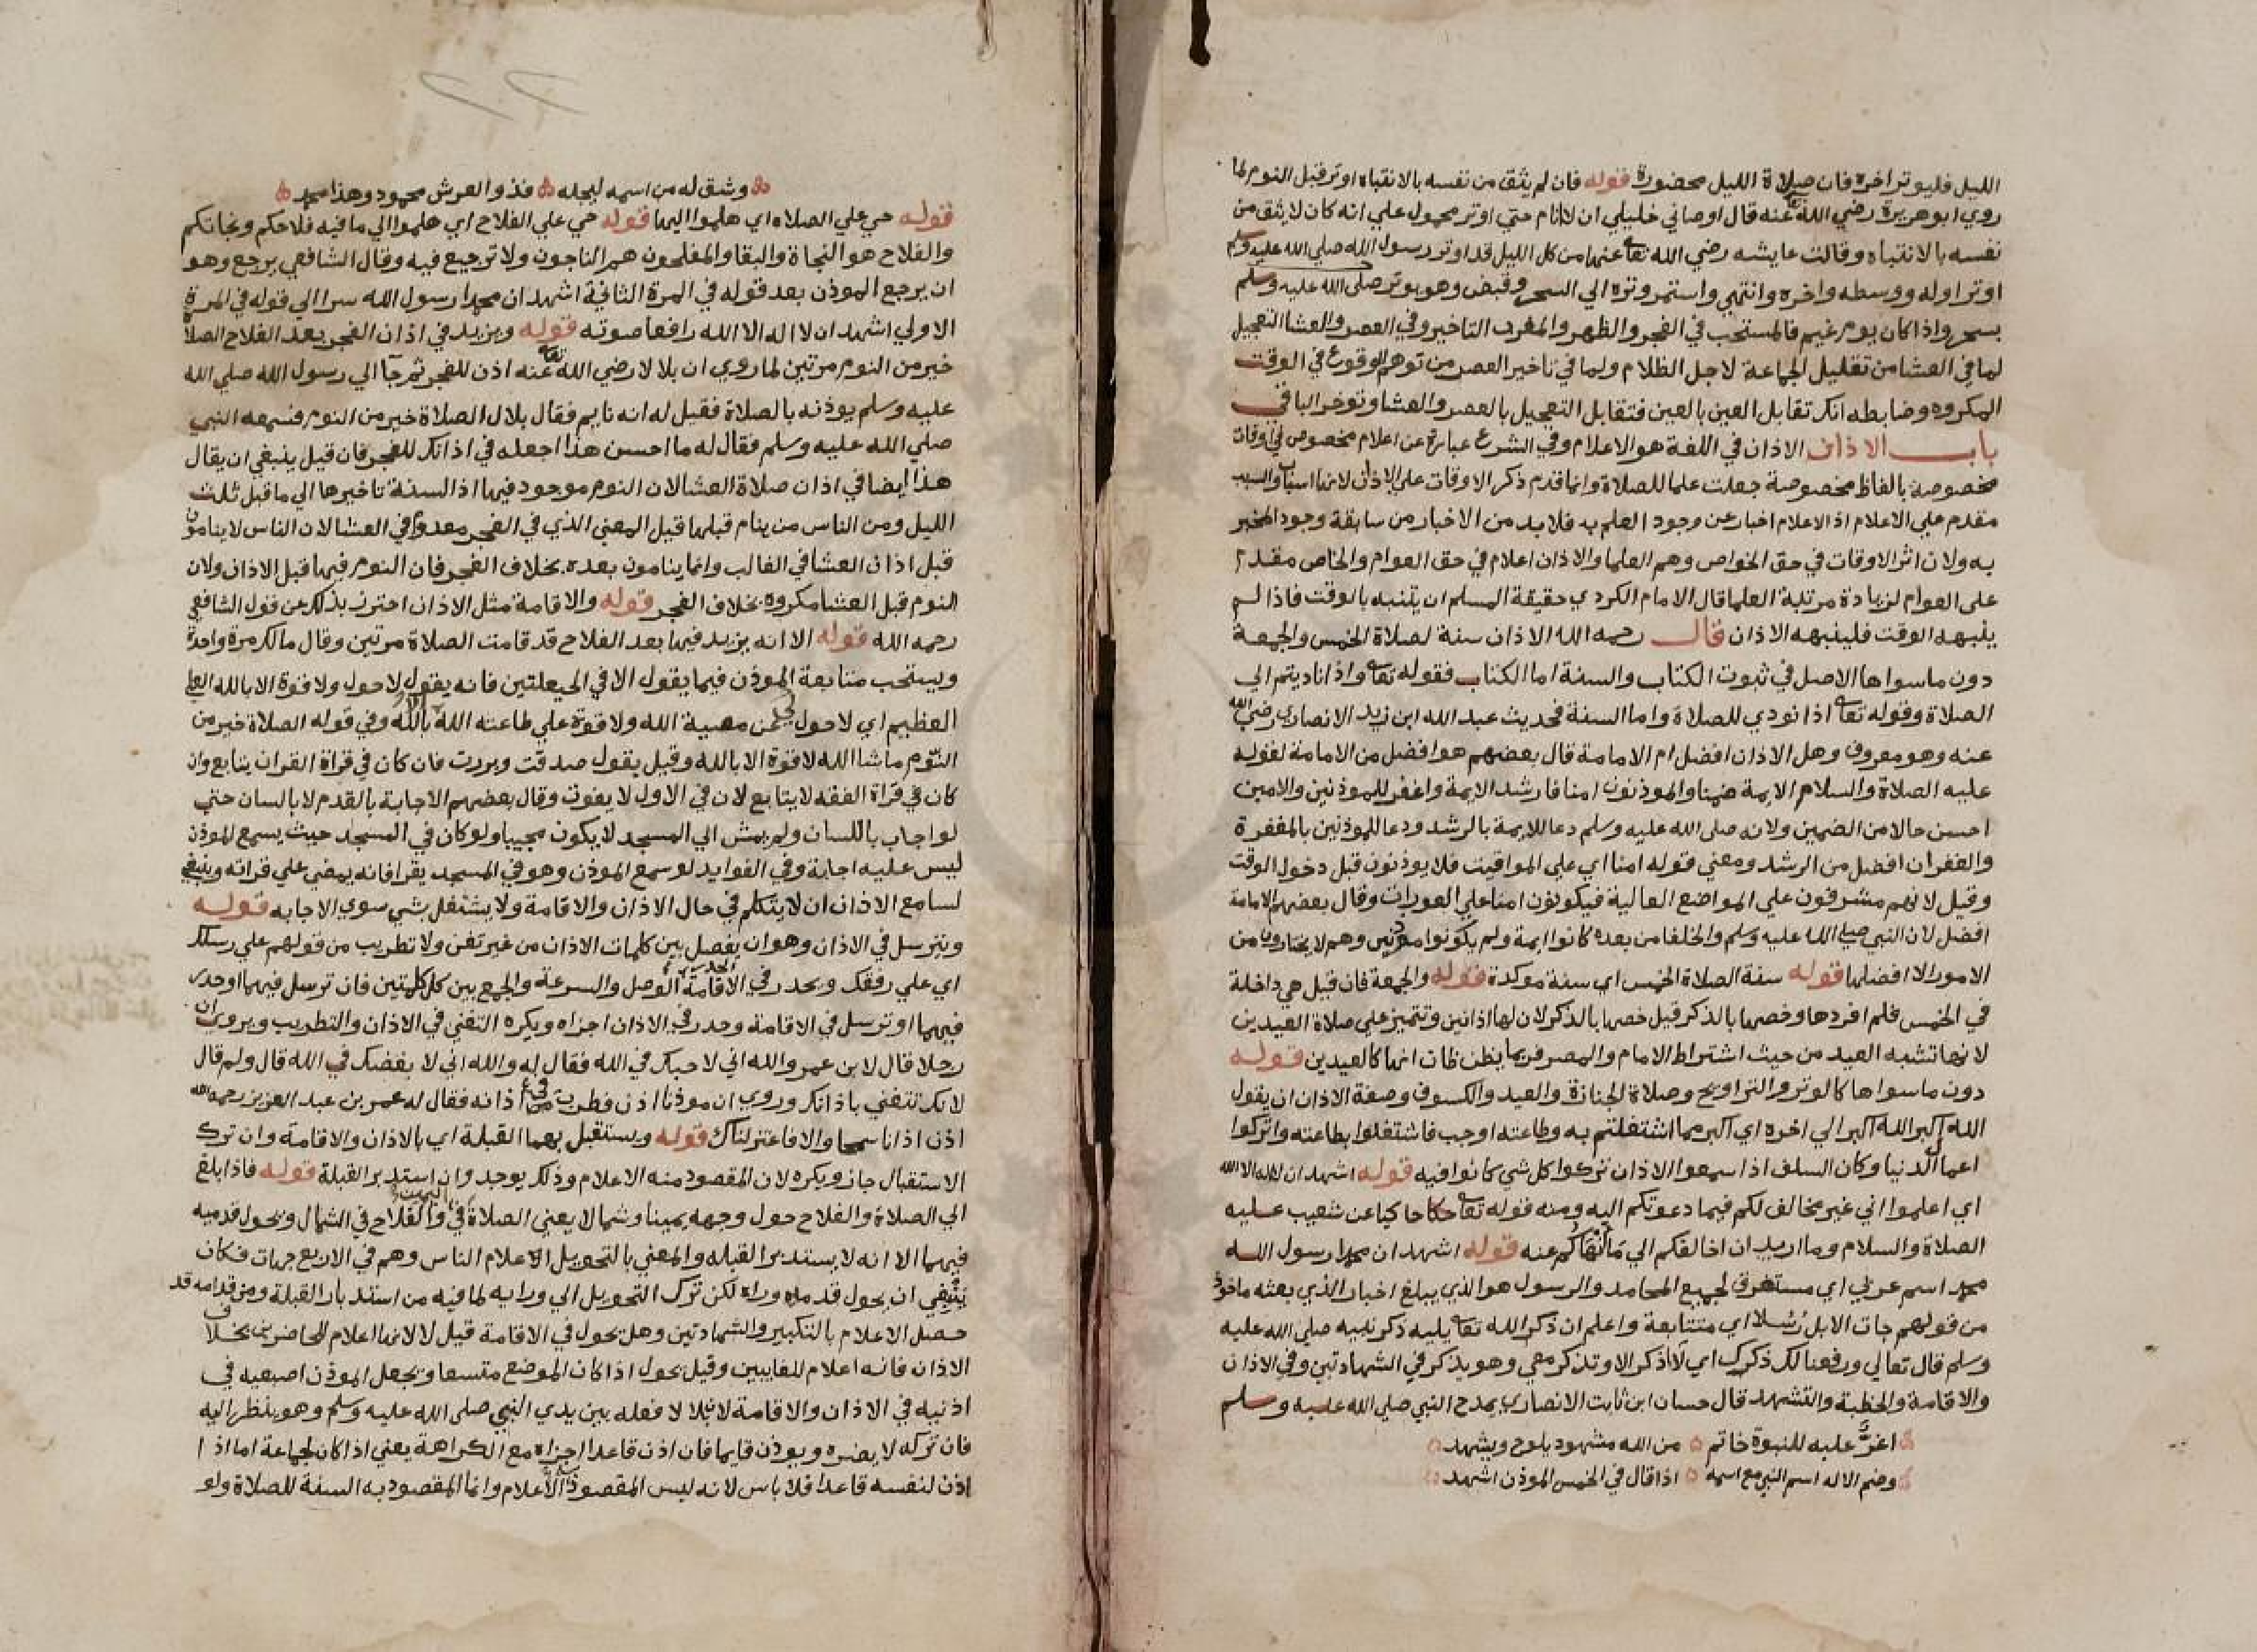 الليل فليوتر اخره فان صلاة الليل محضورة قوله فان لم يثق من نفسه بالانتباه اوتر قبل النوم لما
روي ابو هريرة رضي الله تعا عنه قال اوصاني خليلي ان لا انام حتي اوتر محمول علي انه كان لا يثق من
نفسه بالانتباه وقالت عايشه رضي الله تعا عنها من كل الليل قد اوتر رسول الله صلي الله عليه وسلم
اوتر اوله ووسطه واخره وانتهي واستمر وتره الي السحر وقبض وهو يوتر صلي الله عليه وسلم
بسحر واذا كان يوم غيم فالمستحب في الفجر والظهر والمغرب التاخير وفي العصر والعشا التعجيل
لما في العشا من تقليل الجماعة لاجل الظلام ولما في تاخير العصر من توهم الوقوع في الوقت
المكروه وضابطه انك تقابل العين بالعين فتقابل التعجيل بالعصر والعشا وتوخر الباقي
باب الاذان الاذان في اللغة هو الاعلام وفي الشرع عبارة عن اعلام مخصوص في اوقات
مخصوصة بالفاظ مخصوصة جعلت علما للصلاة وانما قدم ذكر الاوقات علي الاذان لانها اسباب والسبب
مقدم علي الاعلام اذ الاعلام اخبار عن وجود العلم به فلا بد من الاخبار من سابقة وجود المخبر
به ولان اثر الاوقات في حق الخواص وهم العلما والاذان اعلام في حق العوام والخاص مقدم
علي العوام لزيادة مرتبة العلما قال الامام الكردي حقيقة المسلم ان يتنبه بالوقت فاذا لم
ينبهه الوقت فلينبهه الاذان قال رحمه الله الاذان سنة لصلاة الخمس والجمعة
دون ما سواها الاصل في ثبوت الكتاب والسنة اما الكتاب فقوله تعا واذا ناديتم الي
الصلاة وقوله تعا اذا نودي للصلاة واما السنة فحديث عبد الله ابن زيد الانصاري رضي الله
عنه وهو معروف وهل الاذان افضل ام الامامة قال بعضهم هو افضل من الامامة لقوله
عليه الصلاة والسلام الايمة ضمنا والموذنون امنا فارشد الايمة واغفر للموذنين والامين
احسن حالا من الضمين ولانه صلي الله عليه وسلم دعا للايمة بالرشد ودعا للموذنين بالمغفرة
والغفران افضل من الرشد ومعني قوله امنا اي علي المواقيت فلا يوذنون قبل دخول الوقت
وقيل لانهم مشرفون علي المواضع العالية فيكونون امنا علي العورات وقال بعضهم الامامة
افضل لان النبي صلي الله عليه وسلم والخلفا من بعده كانوا ايمة ولم يكونوا موذنين وهم لا يختارون من
الامور الا افضلها قوله سنة الصلاة الخمس اي سنة موكدة قوله والجمعة فان قيل هي داخلة
في الخمس فلم افردها وخصها بالذكر قيل خصها بالذكر لان لها اذانين وتتميز علي صلاة العيدين
لانها تشبه العيد من حيث اشتراط الامام والمصر فربما يظن ظان انها كالعيدين قوله
دون ما سواها كالوتر والتراويح وصلاة الجنازة والعيد والكسوف وصفة الاذان ان يقول
الله اكبر الله اكبر الي اخره اي اكبر مما اشتغلتم به وطاعته اوجب فاشتغلوا بطاعته واتركوا
اعمال الدنيا وكان السلف اذا سمعوا الاذان تركوا كل شي كانوا فيه قوله اشهد ان لا اله الا الله
اي اعلموا اني غير مخالف لكم فيما دعوتكم اليه ومنه قوله تعا حاكيا عن شعيب عليه
الصلاة والسلام وما اريد ان اخالفكم الي ما انهاكم عنه قوله اشهد ان محمدا رسول الله
محمد اسم عربي اي مستغرق لجميع المحامد والرسول هو الذي يبلغ اخبار الذي بعثه ماخوذ
من قولهم جات الابل رُسُلا اي متتابعة واعلم ان ذكر الله تعا يليه ذكر نبيه صلي الله عليه
وسلم قال تعالي ورفعنا لك ذكرك اي لا اذكر الا وتذكر معي وهو يذكر في الشهادتين وفي الاذان
والاقامة والخطبة والتشهد قال حسان ابن ثابت الانصاري يمدح النبي صلي الله عليه وسلم
اغرّ عليه للنبوة خاتم من الله مشهود يلوح ويشهد
وضم الاله اسم النبي مع اسمه اذا قال في الخمس الموذن اشهد
وشق له من اسمه ليجله فذو العرش محمود وهذا محمد
قوله حي علي الصلاه اي هلموا اليها قوله حي علي الفلاح اي هلموا الي ما فيه فلاحكم ونجاتكم
والفلاح هو النجاة والبقا والمفلحون هم الناجون ولا ترجيع فيه وقال الشافعي يرجع وهو
ان يرجع الموذن بعد قوله في المرة الثانية اشهد ان محمدا رسول الله سرا الي قوله في المرة
الاولي اشهد ان لا اله الا الله رافعا صوته قوله ويزيد في اذان الفجر بعد الفلاح الصلاة
خير من النوم مرتين لما روي ان بلالا رضي الله تعا عنه اذن للفجر ثم جآ الي رسول الله صلي الله
عليه وسلم يوذنه بالصلاة فقيل له انه نايم فقال بلال الصلاة خير من النوم فسمعه النبي
صلي الله عليه وسلم فقال له ما احسن هذا اجعله في اذانك للفجر فان قيل ينبغي ان يقال
هذا ايضا في اذان صلاة العشا لان النوم موجود فيها اذ السنة تاخيرها الي ما قبل ثلث
الليل ومن الناس من ينام قبلها قيل المعني الذي في الفجر معدوم في العشا لان الناس لا ينامون
قبل اذان العشا في الغالب وانما ينامون بعده بخلاف الفجر فان النوم فيها قبل الاذان ولان
النوم قبل العشا مكروه بخلاف الفجر قوله والاقامة مثل الاذان احترز بذلك عن قول الشافعي
رحمه الله قوله الا انه يزيد فيها بعد الفلاح قد قامت الصلاة مرتين وقال مالك مرة واحدة
ويستحب متابعة الموذن فيما يقول الا في الحيعلتين فانه يقول لا حول ولا قوة الا بالله العلي
العظيم اي لا حول لي عن معصية الله ولا قوة علي طاعته الا بالله وفي قوله الصلاة خير من
النوم ما شا الله لا قوة الا بالله وقيل يقول صدقت وبررت فان كان في قراة القران يتابع وان
كان في قراة الفقه لا يتابع لان في الاول لا يفوت وقال بعضهم الاجابة بالقدم لا بالسان حتي
لو اجاب باللسان ولم يمش الي المسجد لا يكون مجيبا ولو كان في المسجد حيث يسمع الموذن
ليس عليه اجابة وفي الفوايد لو سمع الموذن وهو في المسجد يقرا فانه يمضي علي قراته وينبغي
لسامع الاذان ان لا يتكلم في حال الاذان والاقامة ولا يشتغل بشي سوي الاجابه قوله
ويترسل في الاذان وهو ان يفصل بين كلمات الاذان من غير تغن ولا تطريب من قولهم علي رسلك
اي علي رفقك ويحدر في الاقامة الحدر الوصل والسرعة والجمع بين كل كلمتين فان ترسل فيهما او حدر
فيهما او ترسل في الاقامة وحدر في الاذان اجزاه ويكره التغني في الاذان والتطريب ويروي ان
رجلا قال لابن عمر والله اني لاحبك في الله فقال له والله اني لابغضك في الله قال ولم قال
لانك تتغني باذانك وروي ان موذنا اذن فطرب في اذانه فقال له عمر بن عبد العزيز رحمه الله
اذن اذانا سمحا والا فاعتزلناك قوله ويستقبل بهما القبلة اي بالاذان والاقامة وان ترك
الاستقبال جاز ويكره لان المقصود منه الاعلام وذلك يوجد وان استدبر القبلة قوله فاذا بلغ
الي الصلاة والفلاح حول وجهه يمينا وشمالا يعني الصلاة في اليمين والفلاح في الشمال ويحول قدميه
فيهما الا انه لا يستدبر القبله والمعني بالتحويل الاعلام الناس وهم في الاربع جهات فكان
ينبغي ان يحول قدامه وراه لكن ترك التحويل الي ورايه لما فيه من استدبار القبلة ومن قدامه قد
حصل الاعلام بالتكبير والشهادتين وهل يحول في الاقامة قيل لا لانها اعلام للحاضرين بخلاف
الاذان فانه اعلام للغايبين وقيل يحول اذا كان الموضع متسعا ويجعل الموذن اصبعيه في
اذنيه في الاذان والاقامة لان بلالا فعله بين يدي النبي صلي الله عليه وسلم وهو ينظر اليه
فان تركه لا يضره ويوذن قايما فان اذن قاعدا اجزاه مع الكراهة يعني اذا كان لجماعة اما اذا
اذن لنفسه قاعدا فلا باس لانه ليس المقصود الاعلام وانما المقصود به السنة للصلاة ولو